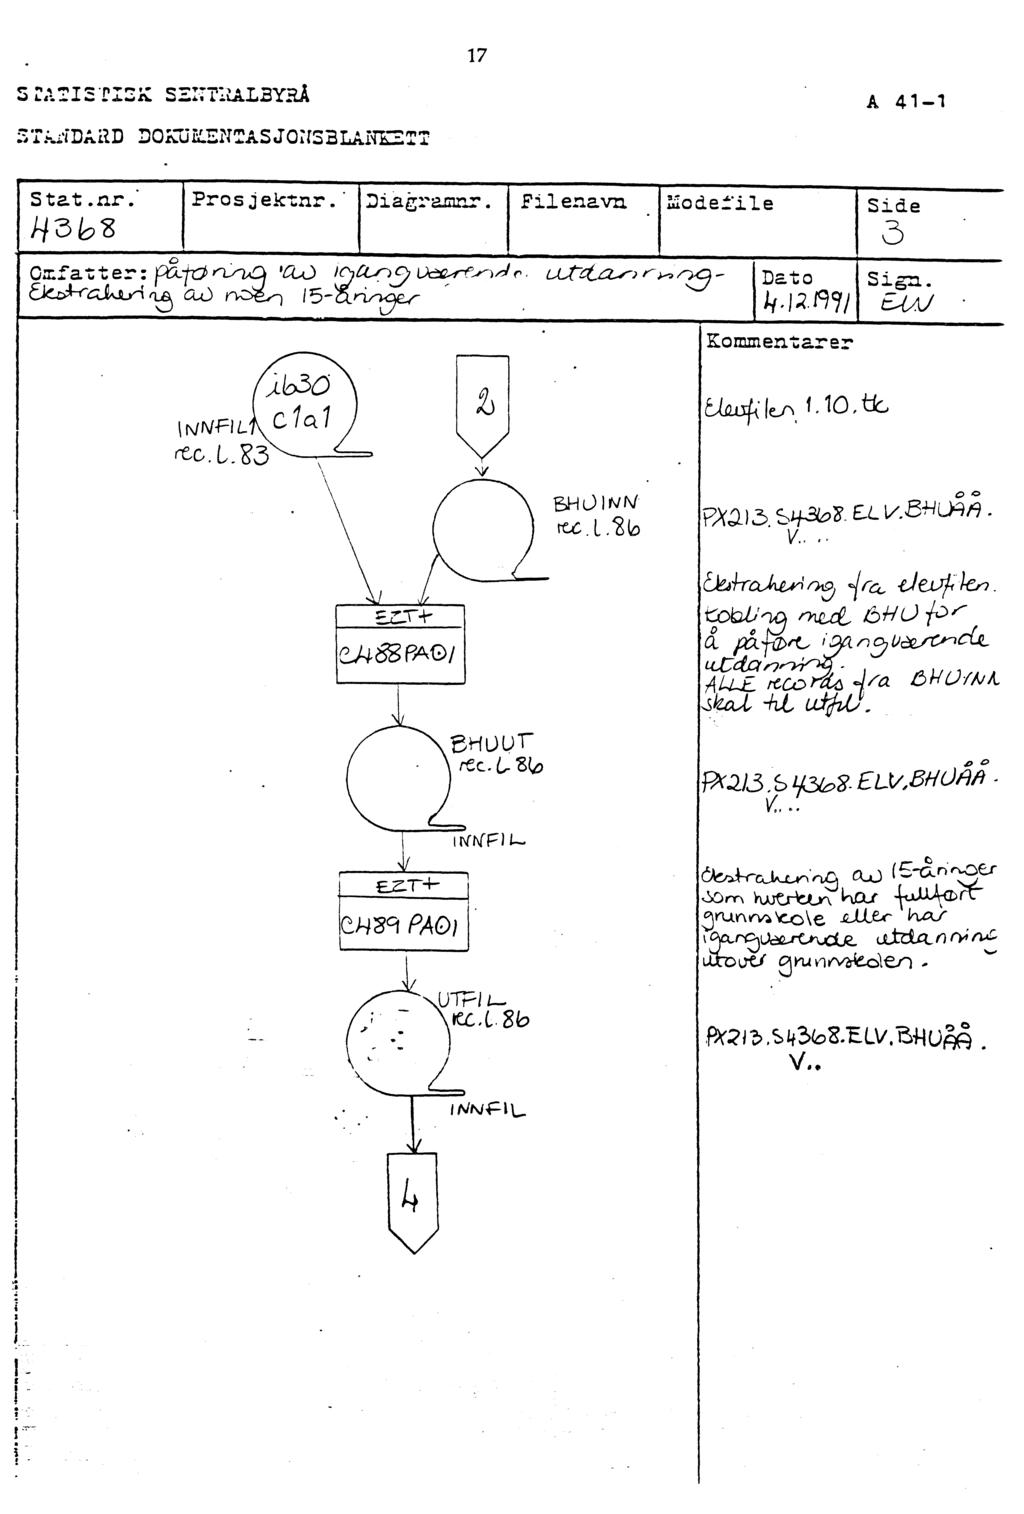 17
STATISTISK SENTRALBYRÅ
A 41-1
STANDARD DOKUMENTASJONSBLANKETT
Stat.nr. Prosjektnr. Diagramnr. Filenavn Modefile Side
4368 3
Omfatter: påføring av igangværende utdanning-
Ekstrahering av noen 15-åringer
Dato Sign.
4.12.1991
Kommentarer
ib30
c1a1
INNFIL1
rec.l.83
2
Elevfilen 1.10.
BHUINN
rec.l.86
PX213.S4368.ELV.BHUÅÅ.
V....
EZT+
C488PA01
Ekstrahering fra elevfilen.
Kobling med BHU for
å påføre igangværende
utdanning.
ALLE records fra BHUINN
skal til utfil.
BHUUT
rec.l.86
INNFIL
PX213.S4368.ELV.BHUÅÅ.
V....
EZT+
C489PA01
Ekstrahering av 15-åringer
som hverken har fullført
grunnskole eller har
igangværende utdanning
utover grunnskolen.
UTFIL
rec.l.86
INNFIL
PX213.S4368.ELV.BHUÅÅ.
V..
4